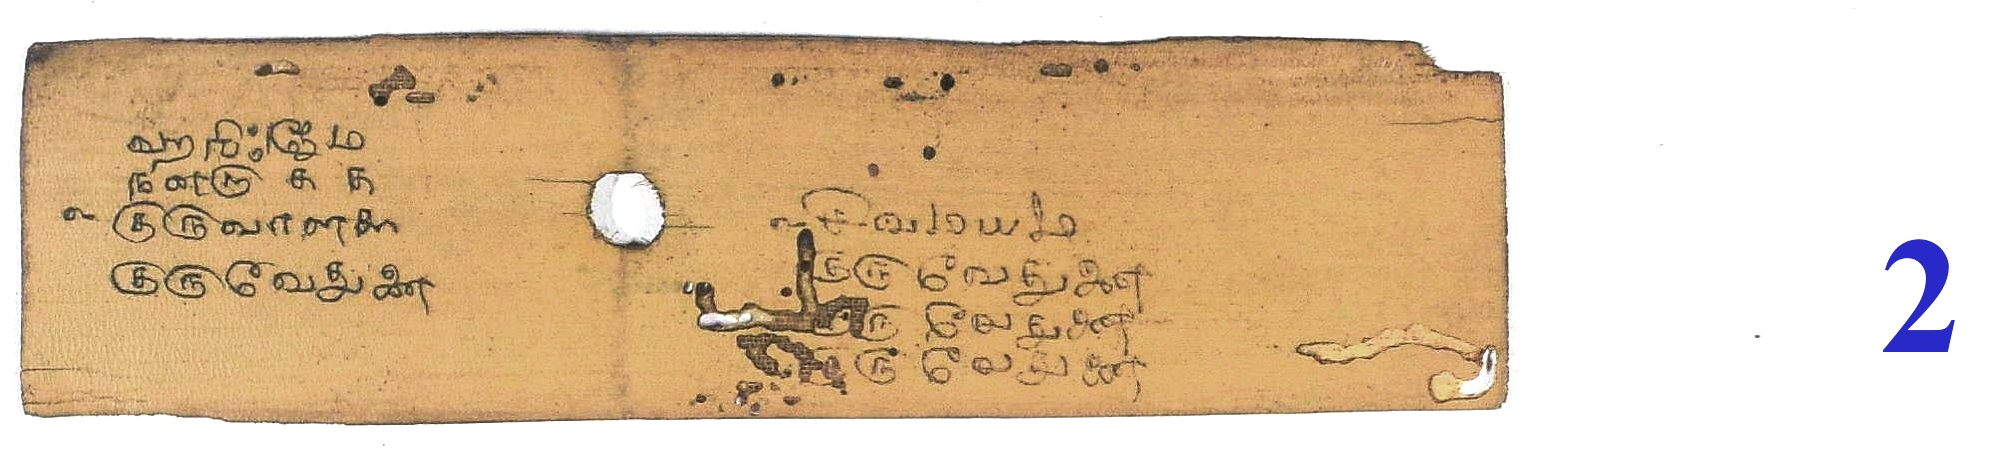 ஹரி:ஓம
நனரு க க
உ குருவாளக
குருவேதுணை
உ சிவமயம
குருவேதுணை
குருவேதுணை
குருவேதுணை
2